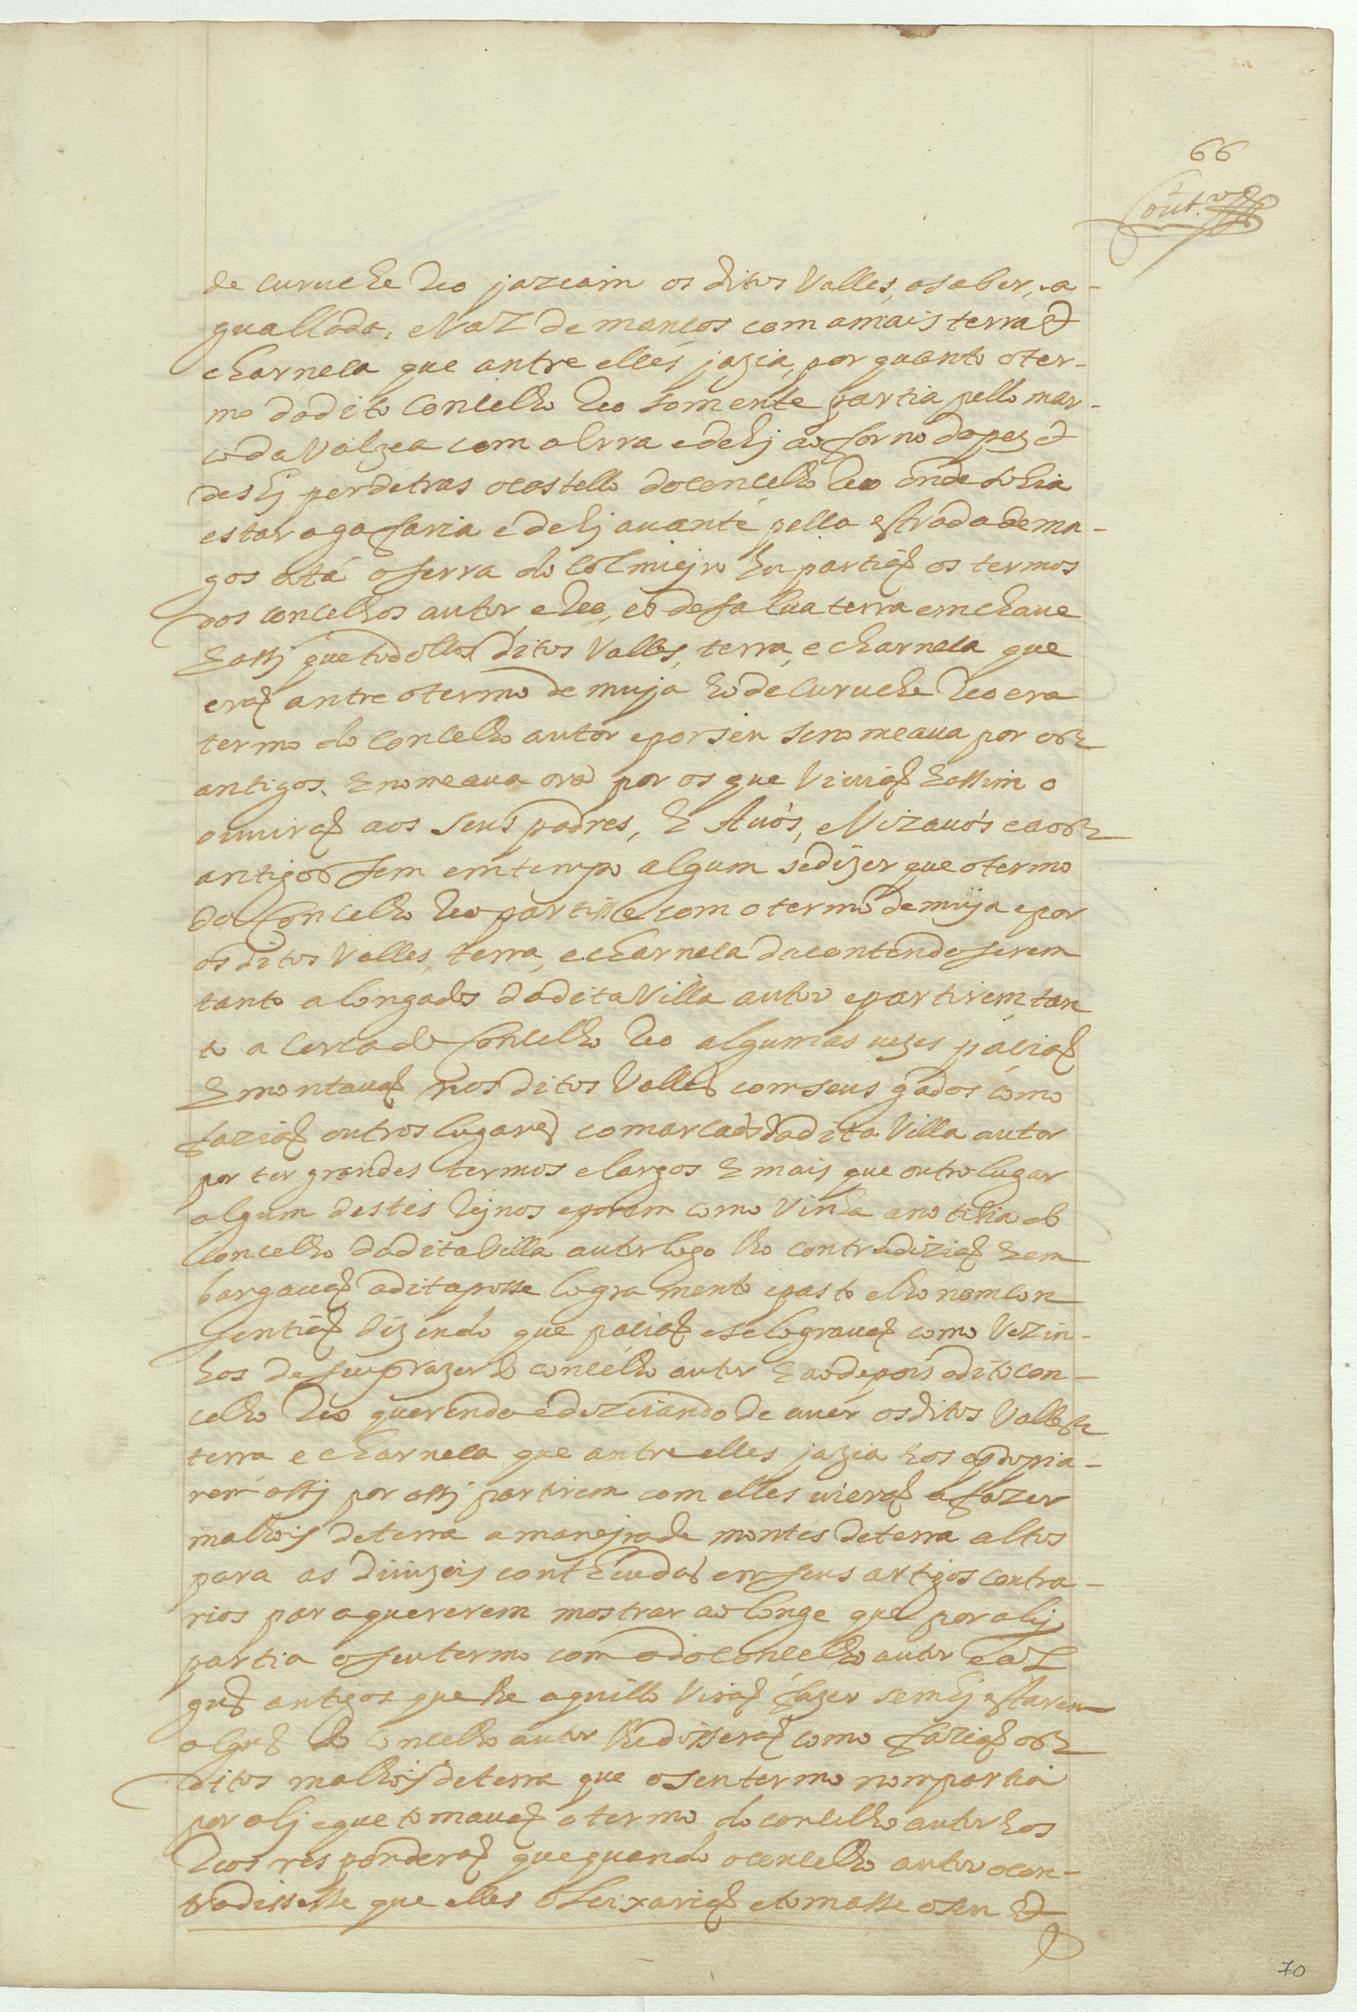 66
Cout.º
de curuche Reo jaziam os ditos Valles, a saber, a
guallada, e Val de mancos com a mais terra e
charneca que antre elles jazia, por quanto o ter-
mo do dito Concelho Reo somente partia pello mar-
co da Valzea com a Erra e dehj ao forno do pez e
deshj per detras o castello do concelho Reo onde sohia
estar a gafaria e dehj auante pella estrada de ma-
gos atá o serra do Colmieiro hu partiaõ os termos
dos concelhos autor, e Reo, e o de saluaterra em chaue
E assj que todollos ditos Valles, terra, e charneca que
eraõ antre o termo de muja ho de Curuche Reo era
termo do Concelho autor e por seu se nomeaua por os
antigos, E nomeaua ora por os que Viuiaõ E assim o
ouuiraõ aos seus padres, E Auós, e Vizauós e aos
antigos sem em tempo algum se dizer que o termo
do Concelho Reo partisse com o termo de muja e por
os ditos Valles, terra, e charneca da contenda serem
tanto alongados da dita Villa autor e partirem tan
to a cerca do Concelho Reo algumas vezes paciaõ
E montauaõ nos ditos Valles com seus gados como
faziaõ outros lugares comarcaõs da dita Villa autor
por ter grandes termos e largos E mais que outro lugar
algum destes Rejnos e porem como Vinha a noticia ao
Concelho da dita Villa autor logo lho contradiziaõ E em
bargauaõ a dita posse logramento e pasto e lho nom con
sentiaõ dizendo que paciaõ e se lograuaõ como Vezin-
hos de seu prazer do concelho autor E ao depois o dito con-
celho Reo querendo e dezeiando de auer os ditos Valles
terra e charneca que antre elles jazia hos apropria-
rem assj por assj partirem com elles vieraõ a fazer
malhois de terra a maneira de montes de terra altos
para as diuizois contheudas em seus artigos contra-
rios para quererem mostrar ao longe que por alj
partia o seu termo com o do Concelho autor E al
guns antigos que lhe aquillo Viraõ fazer sem hj estarem
alguns do Concelho autor lhe disseraõ como faziaõ os
ditos malhois de terra que o seu termo nom partia
por alj e que tomauaõ o termo do concelho autor hos
Reos responderaõ que quando o concelho autor o con-
tradissesse que elles o leixariaõ e tomasse o seu E
70